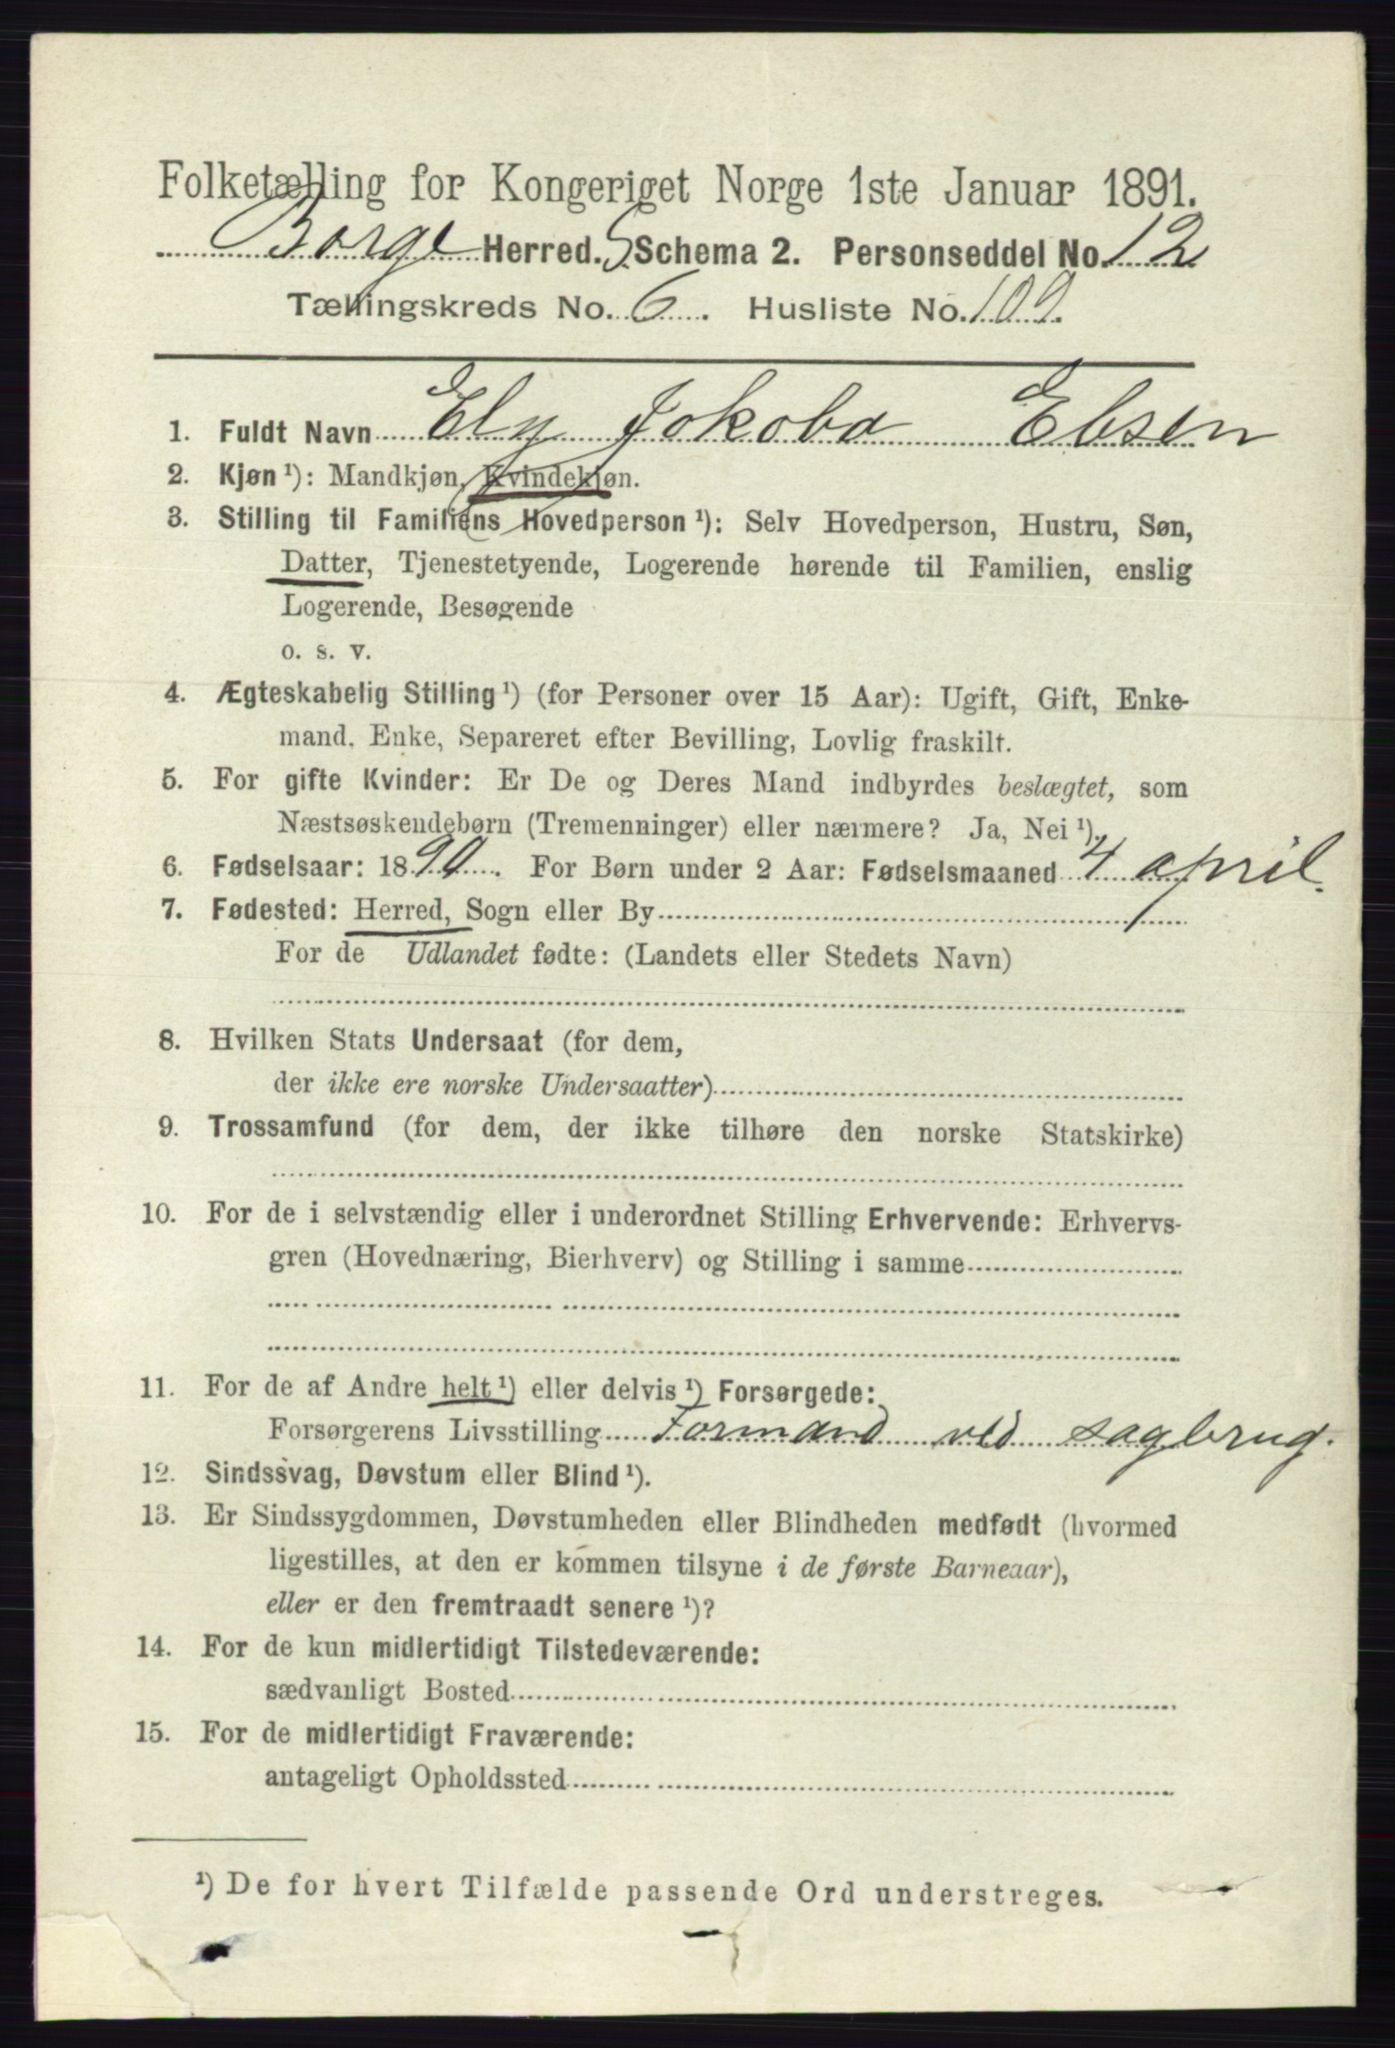 Folketælling for Kongeriget Norge 1ste Januar 1891.
Borge Herred. S. Schema 2. Personseddel No. 12
Tællingskreds No. 6. Husliste No. 109.
1. Fuldt Navn Ely Jokoba Ebsen
2. Kjøn ¹): Mandkjøn, Kvindekjøn.
3. Stilling til Familiens Hovedperson ¹): Selv Hovedperson, Hustru, Søn,
Datter, Tjenestetyende, Logerende hørende til Familien, enslig
Logerende, Besøgende
o. s. v.
4. Ægteskabelig Stilling ¹) (for Personer over 15 Aar): Ugift, Gift, Enke-
mand, Enke, Separeret efter Bevilling, Lovlig fraskilt.
5. For gifte Kvinder: Er De og Deres Mand indbyrdes beslægtet, som
Næstsøskendebørn (Tremenninger) eller nærmere? Ja, Nei ¹).
6. Fødselsaar: 1890. For Børn under 2 Aar: Fødselsmaaned 4 april.
7. Fødested: Herred, Sogn eller By
For de Udlandet fødte: (Landets eller Stedets Navn)
8. Hvilken Stats Undersaat (for dem,
der ikke ere norske Undersaatter)
9. Trossamfund (for dem, der ikke tilhøre den norske Statskirke)
10. For de i selvstændig eller i underordnet Stilling Erhvervende: Erhvervs-
gren (Hovednæring, Bierhverv) og Stilling i samme
11. For de af Andre helt ¹) eller delvis ¹) Forsørgede:
Forsørgerens Livsstilling Formand ved sagbrug.
12. Sindssvag, Døvstum eller Blind ¹).
13. Er Sindssygdommen, Døvstumheden eller Blindheden medfødt (hvormed
ligestilles, at den er kommen tilsyne i de første Barneaar),
eller er den fremtraadt senere ¹)?
14. For de kun midlertidigt Tilstedeværende:
sædvanligt Bosted
15. For de midlertidigt Fraværende:
antageligt Opholdssted
¹) De for hvert Tilfælde passende Ord understreges.